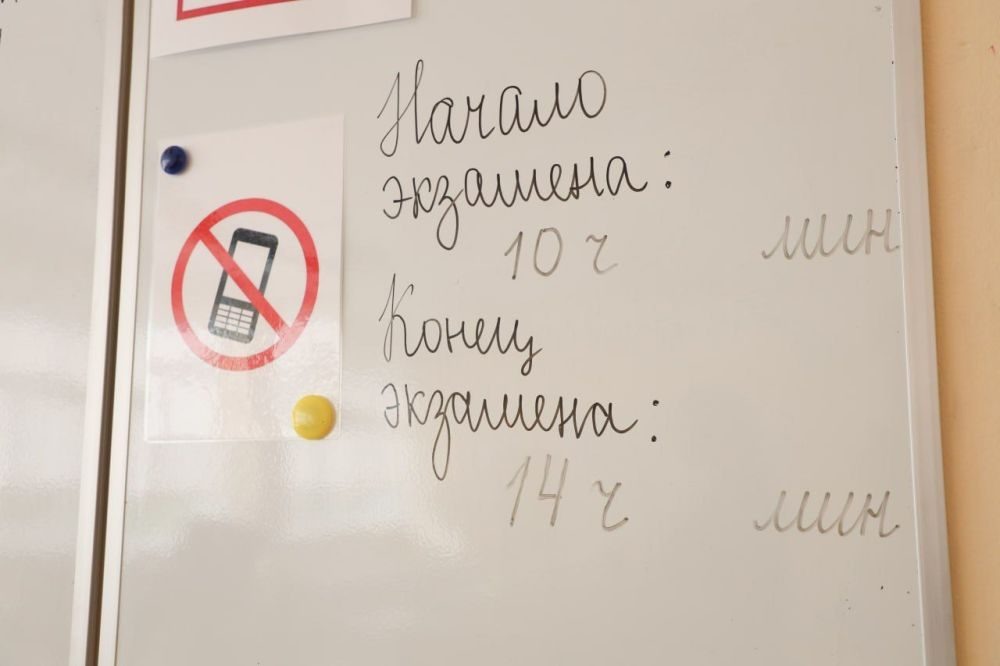 Начало
экзамена:
10 ч мин
Конец
экзамена:
14 ч мин